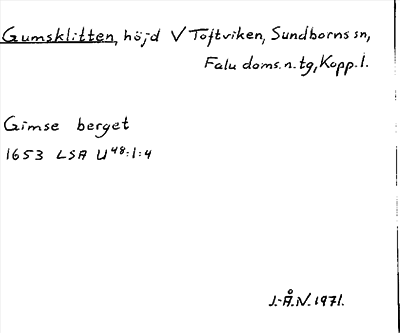 Gumsklitten, höjd V Toftviken, Sundborns sn,
Falu doms. n. tg, Kopp. l.
Gimse berget
1653 LSA U48:1:4
J.-Å.N. 1971.